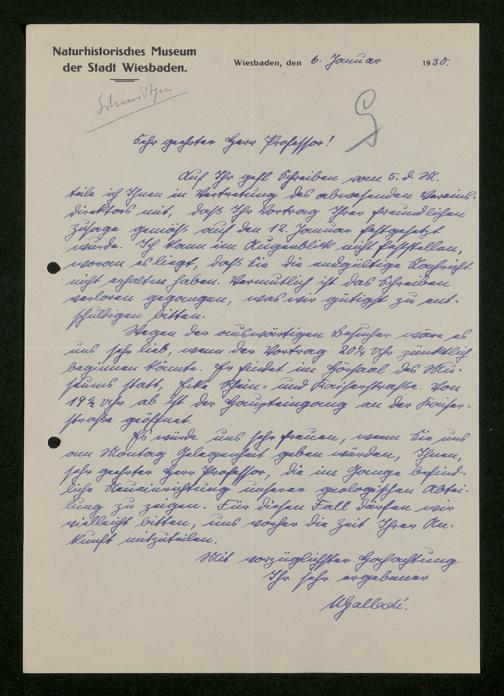 Naturhistorisches Museum
der Stadt Wiesbaden.
Wiesbaden, den 6. Januar 1930.
Schmidtgen
Sehr geehrter Herr Professor!
Auf Ihr gefl. Schreiben vom 5. d. M.
teile ich Ihnen in Vertretung des abwesenden Vereins-
direktors mit, daß Ihr Vortrag Ihrer freundlichen
Zusage gemäß auf den 12. Januar festgesetzt
wurde. Ich kann im Augenblick nicht feststellen,
woran es liegt, daß Sie die endgültige Nachricht
nicht erhalten haben. Vermutlich ist das Schreiben
verloren gegangen, was wir gütigst zu ent-
schuldigen bitten.
Wegen der auswärtigen Besucher wäre es
uns sehr lieb, wenn der Vortrag 20¼ Uhr pünktlich
beginnen könnte. Er findet im Hörsaal des Mu-
seums statt, Ecke Rhein- und Kaiserstraße. Von
19½ Uhr ab ist der Haupteingang an der Kaiser-
straße geöffnet.
Es würde uns sehr freuen, wenn Sie uns
am Montag Gelegenheit geben würden, Ihnen,
sehr geehrter Herr Professor, die im Gange befind-
liche Neueinrichtung unserer geologischen Abtei-
lung zu zeigen. Für diesen Fall dürfen wir
vielleicht bitten, uns vorher die Zeit Ihrer An-
kunft mitzuteilen.
Mit vorzüglichster Hochachtung
Ihr sehr ergebener
Galladé.